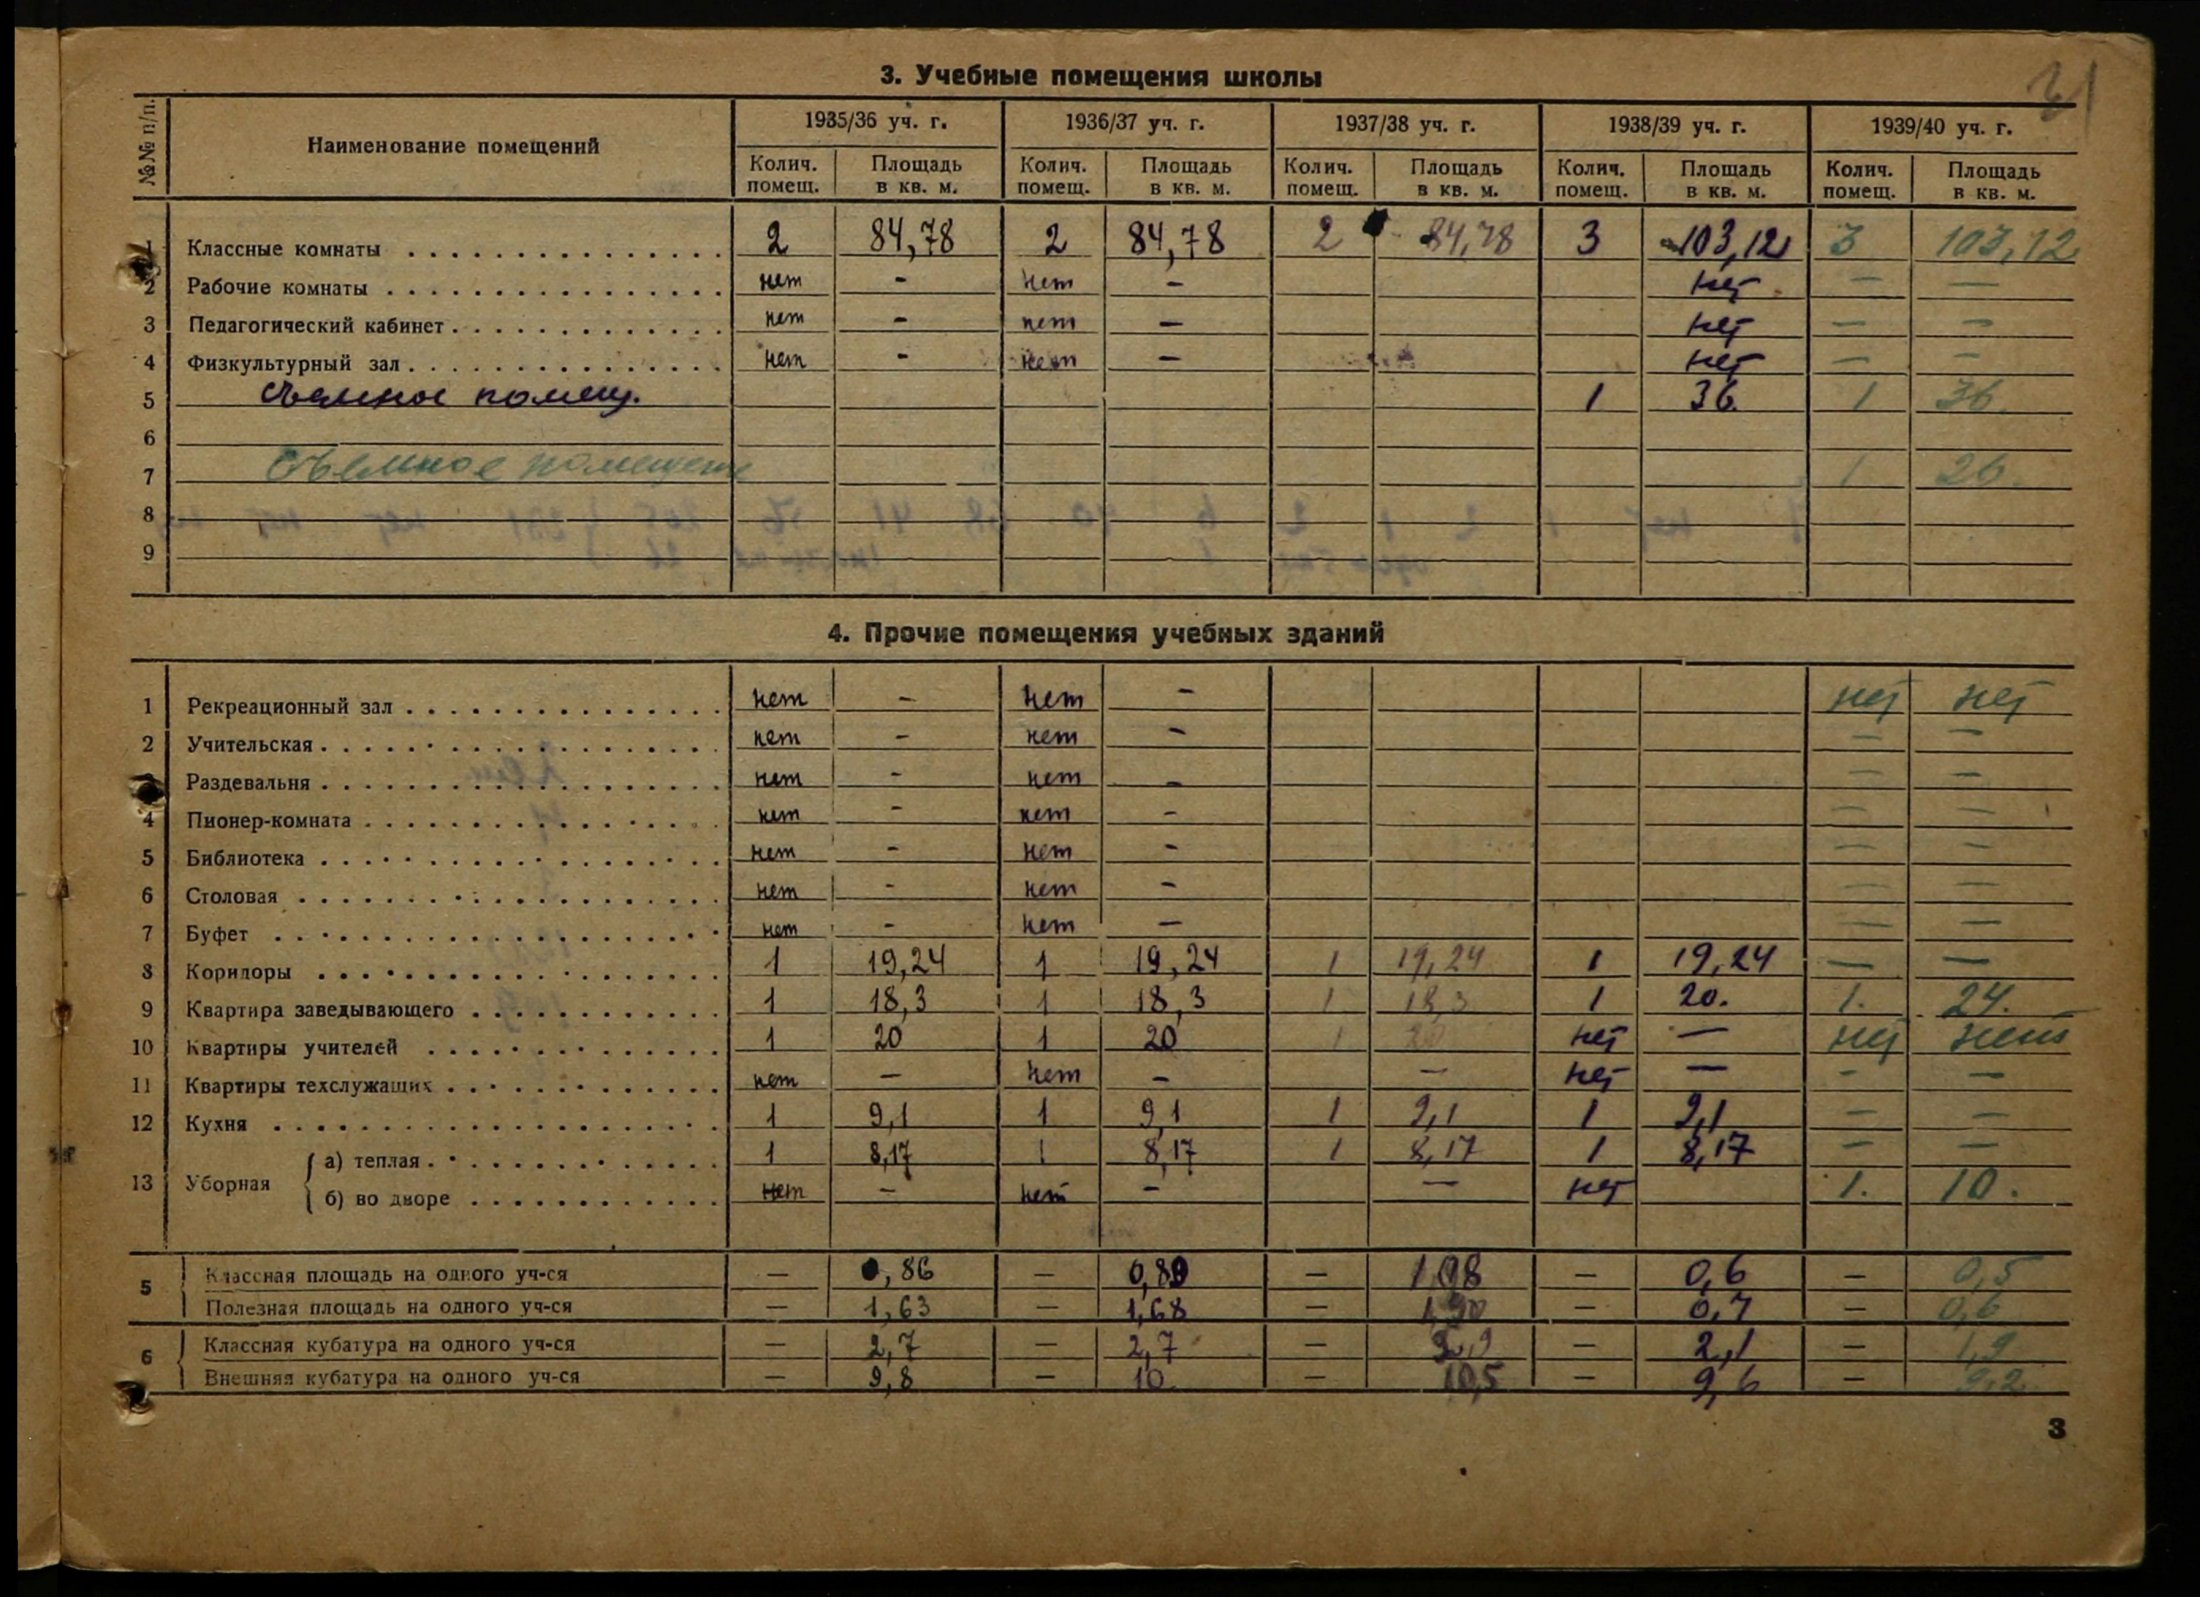 31
3. Учебные помещения школы
№№ п/п. Наименование помещений 1935/36 уч. г. 1936/37 уч. г. 1937/38 уч. г. 1938/39 уч. г. 1939/40 уч. г.
Колич. помещ. Площадь в кв. м. Колич. помещ. Площадь в кв. м. Колич. помещ. Площадь в кв. м. Колич. помещ. Площадь в кв. м. Колич. помещ. Площадь в кв. м.
1 Классные комнаты 2 84,78 2 84,78 2 84,78 3 103,12 3 103,12
2 Рабочие комнаты нет - нет - нет — —
3 Педагогический кабинет нет - нет — нет — —
4 Физкультурный зал нет - нет — нет — —
5 съемное помещ. 1 36. 1 36.
6
7 Съемное помещение 1 26.
8
9
4. Прочие помещения учебных зданий
1 Рекреационный зал нет - нет - нет нет
2 Учительская нет - нет - — —
3 Раздевальня нет - нет - — —
4 Пионер-комната нет - нет - — —
5 Библиотека нет - нет - — —
6 Столовая нет - нет - — —
7 Буфет нет - нет — — —
8 Коридоры 1 19,24 1 19,24 1 19,24 1 19,24 — —
9 Квартира заведывающего 1 18,3 1 18,3 1 18,3 1 20. 1. 24.
10 Квартиры учителей 1 20 1 20 1 20 нет — нет нет
11 Квартиры техслужащих нет — нет — — нет — - —
12 Кухня 1 9,1 1 9,1 1 9,1 1 9,1 — —
13 Уборная а) теплая 1 8,17 1 8,17 1 8,17 1 8,17 — —
б) во дворе нет — нет — — нет 1. 10.
5 Классная площадь на одного уч-ся — 0,86 — 0,89 — 1,08 — 0,6 — 0,5
Полезная площадь на одного уч-ся — 1,63 — 1,68 — 1,90 — 0,7 — 0,6
6 Классная кубатура на одного уч-ся — 2,7 — 2,7 — — 2,1 — 1,9
Внешняя кубатура на одного уч-ся — 9,8 — 10. — 10,5 — 9,6 — 9,2
3